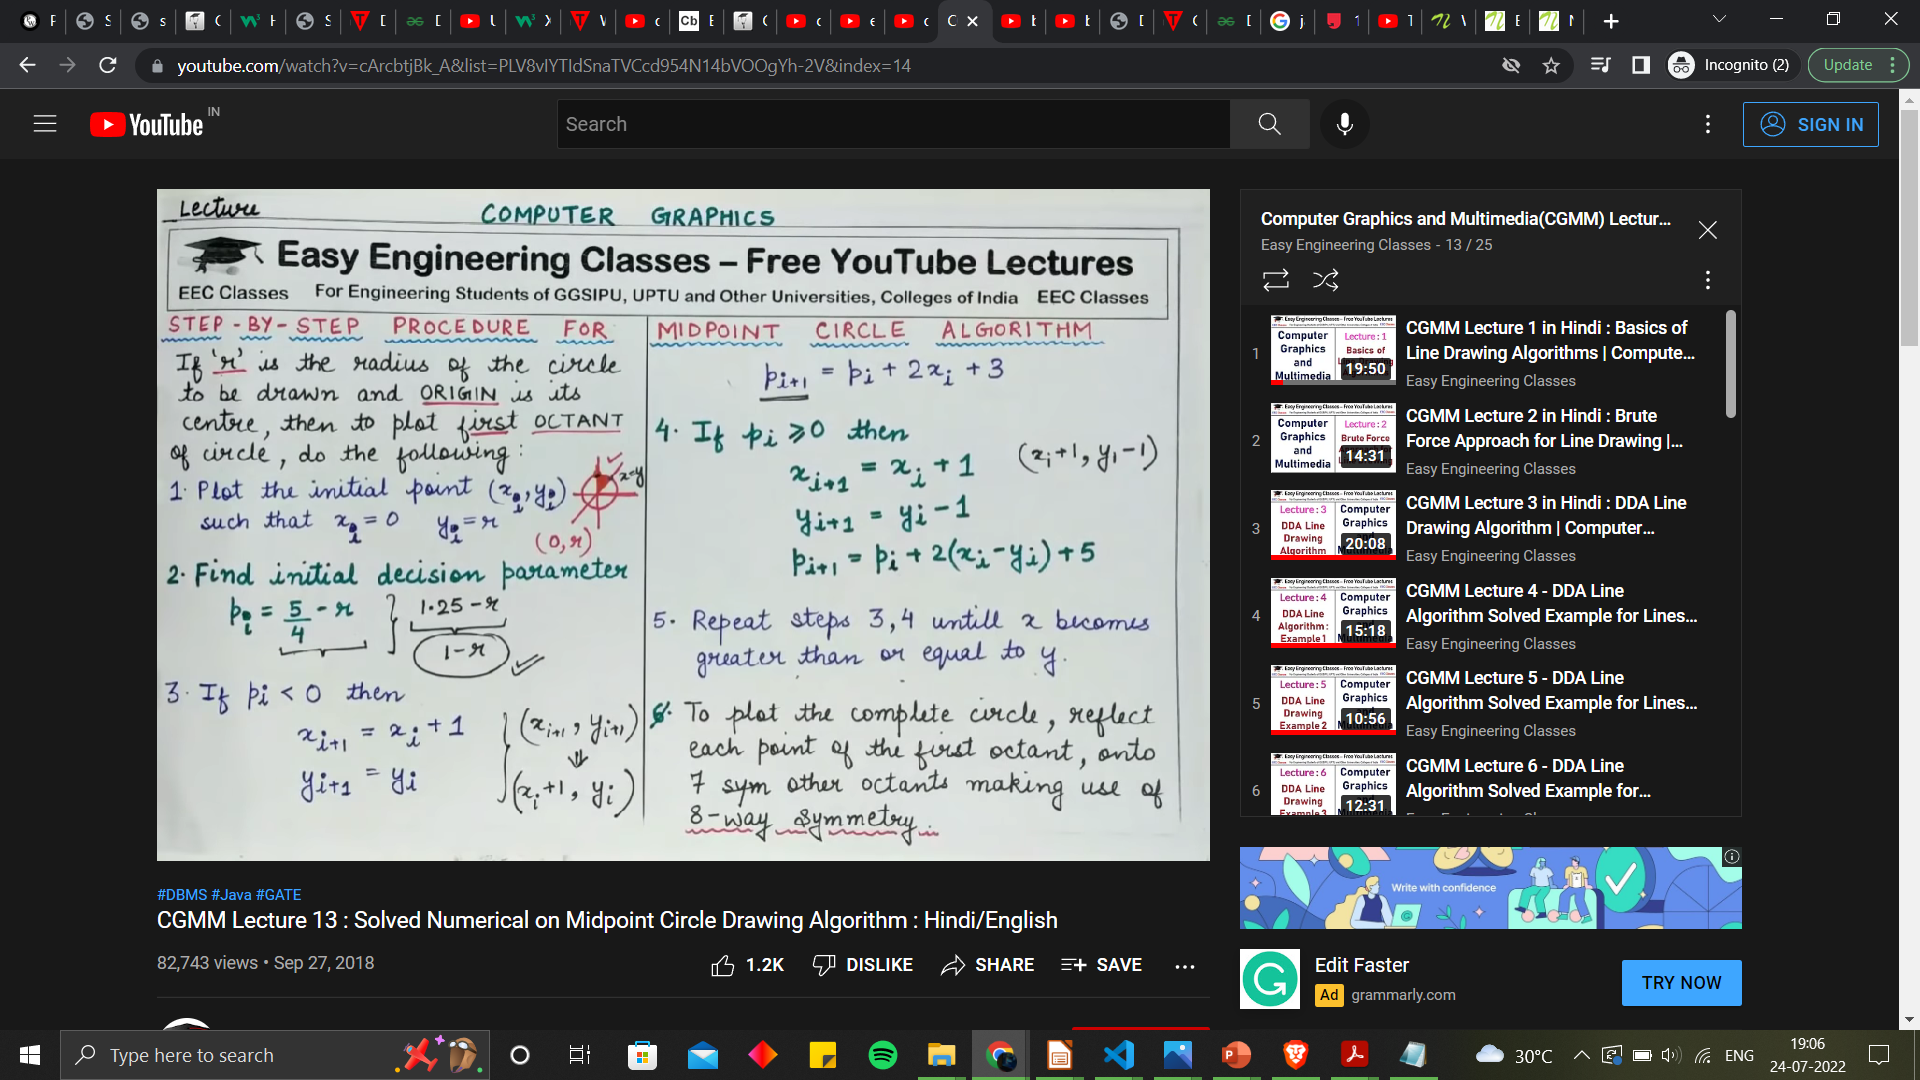 youtube.com/watch?v=cArcbtjBk_A&list=PLV8vIYTIdSnaTVCcd954N14bVOOgYh-2V&index=14
Incognito (2)
Update
YouTube IN
Search
SIGN IN
Lecture
COMPUTER GRAPHICS
Easy Engineering Classes – Free YouTube Lectures
EEC Classes For Engineering Students of GGSIPU, UPTU and Other Universities, Colleges of India EEC Classes
STEP-BY-STEP PROCEDURE FOR MIDPOINT CIRCLE ALGORITHM
If 'r' is the radius of the circle
to be drawn and ORIGIN is its
centre, then to plot first OCTANT
of circle, do the following:
1. Plot the initial point (xi, yi)
such that xi = 0 yi = r
x=y
(0, r)
2. Find initial decision parameter
pi = 5/4 - r } 1.25 - r
1 - r
3. If pi < 0 then
xi+1 = xi + 1
yi+1 = yi
(xi+1, yi+1)
(xi+1, yi)
pi+1 = pi + 2xi + 3
4. If pi ≥ 0 then
(xi+1, yi-1)
xi+1 = xi + 1
yi+1 = yi - 1
pi+1 = pi + 2(xi - yi) + 5
5. Repeat steps 3, 4 untill x becomes
greater than or equal to y.
6. To plot the complete circle, reflect
each point of the first octant, onto
7 sym other octants making use of
8-way symmetry.
#DBMS #Java #GATE
CGMM Lecture 13 : Solved Numerical on Midpoint Circle Drawing Algorithm : Hindi/English
82,743 views • Sep 27, 2018
1.2K DISLIKE SHARE SAVE
Computer Graphics and Multimedia(CGMM) Lectur...
Easy Engineering Classes - 13 / 25
1
Computer Graphics and Multimedia
Lecture : 1
Basics of
19:50
CGMM Lecture 1 in Hindi : Basics of
Line Drawing Algorithms | Compute...
Easy Engineering Classes
2
Computer Graphics and Multimedia
Lecture : 2
Brute Force
14:31
CGMM Lecture 2 in Hindi : Brute
Force Approach for Line Drawing |...
Easy Engineering Classes
3
Lecture : 3
DDA Line Drawing Algorithm
Computer Graphics
20:08
CGMM Lecture 3 in Hindi : DDA Line
Drawing Algorithm | Computer...
Easy Engineering Classes
4
Lecture : 4
DDA Line Algorithm : Example 1
Computer Graphics
15:18
CGMM Lecture 4 - DDA Line
Algorithm Solved Example for Lines...
Easy Engineering Classes
5
Lecture : 5
DDA Line Drawing Example 2
Computer Graphics
10:56
CGMM Lecture 5 - DDA Line
Algorithm Solved Example for Lines...
Easy Engineering Classes
6
Lecture : 6
DDA Line Drawing
Computer Graphics
12:31
CGMM Lecture 6 - DDA Line
Algorithm Solved Example for...
Write with confidence
Edit Faster
Ad grammarly.com
TRY NOW
Type here to search
30°C
ENG
19:06
24-07-2022